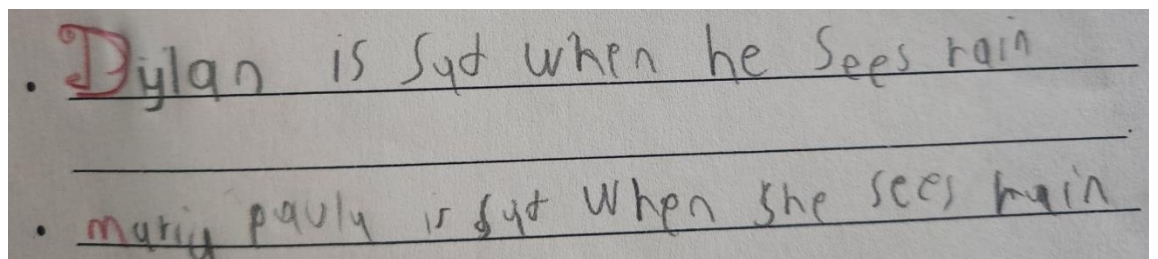 Dylan is sad when he sees rain
maria paula is sad when she sees rain